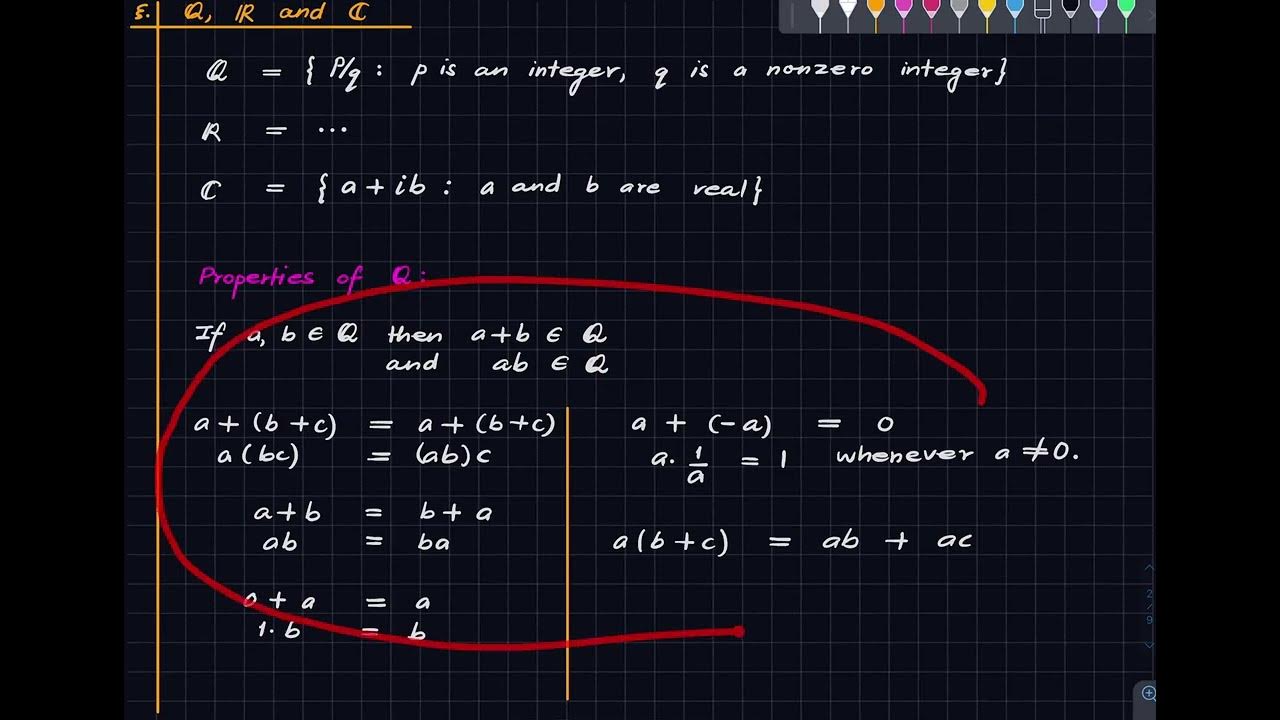 §. ℚ, ℝ and ℂ
ℚ = { p/q : p is an integer, q is a nonzero integer}
ℝ = ...
ℂ = { a + ib : a and b are real}
Properties of ℚ:
If a, b ∈ ℚ then a+b ∈ ℚ
and ab ∈ ℚ
a + (b + c) = a + (b+c)
a (bc) = (ab) c
a + b = b + a
ab = ba
0 + a = a
1. b = b
a + (-a) = 0
a. 1/a = 1 whenever a ≠ 0.
a (b + c) = ab + ac
2/9